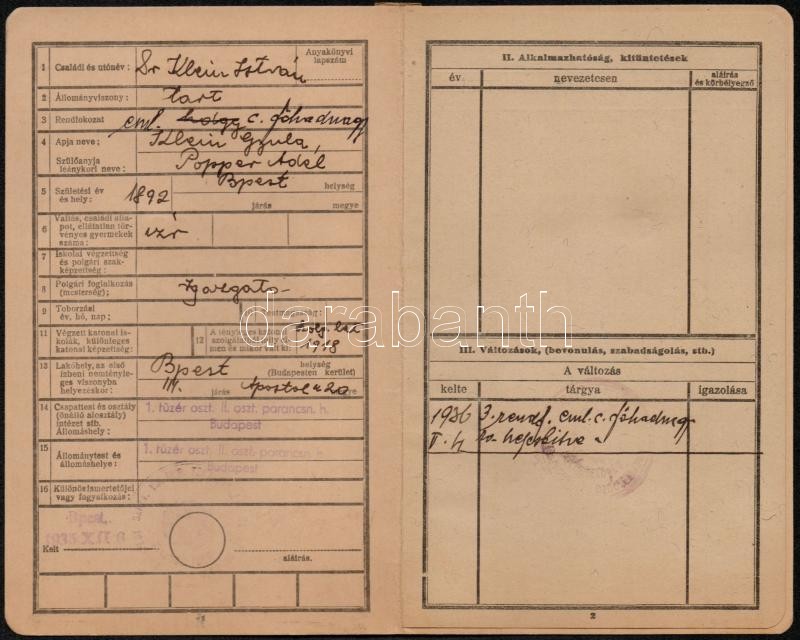 Anyakönyvi
lapszám
1 Családi és utónév: Dr Klein István
2 Állományviszony: tart
3 Rendfokozat eml. hdgy c. főhadnagy
4 Apja neve: Klein Gyula,
Szülőanyja
leánykori neve: Popper Adél
5 Születési év
és hely: 1892 Bpest helység
járás megye
6 Vallás, családi álla-
pot, ellátatlan tör-
vényes gyermekek
száma: izr
7 Iskolai végzettség
és polgári szak-
képzettség:
8 Polgári foglalkozás
(mesterség): igazgató
9 Toborzási
év, hó, nap: Testmagasság:
11 Végzett katonai is-
kolák, különleges
katonai képzettség:
12 A tényleges katonai
szolgálat alól mely cí-
men és mikor vált ki: 1918
13 Lakóhely, az első
ízbeni nemtényle-
ges viszonyba
helyezéskor: Bpest helység
(Budapesten kerület)
III. járás Apostol u 20
14 Csapattest és osztály
(önálló alosztály)
intézet stb.
Állomáshely: 1. tüzér oszt. II. oszt. parancsn. h.
Budapest
15 Állománytest és
állomáshelye: 1. tüzér oszt. II. oszt. parancsn. h.
Budapest
16 Különös ismertetőjei
vagy fogyatkozás:
Bpest,
1935 XII
Kelt
aláírás.
II. Alkalmazhatóság, kitüntetések
év. nevezetesen aláírás
és körbélyegző
III. Változások, (bevonulás, szabadságolás, stb.)
A változás
kelte tárgya igazolása
1936 3. rendf. eml. c. főhadnagy
2
darabanth